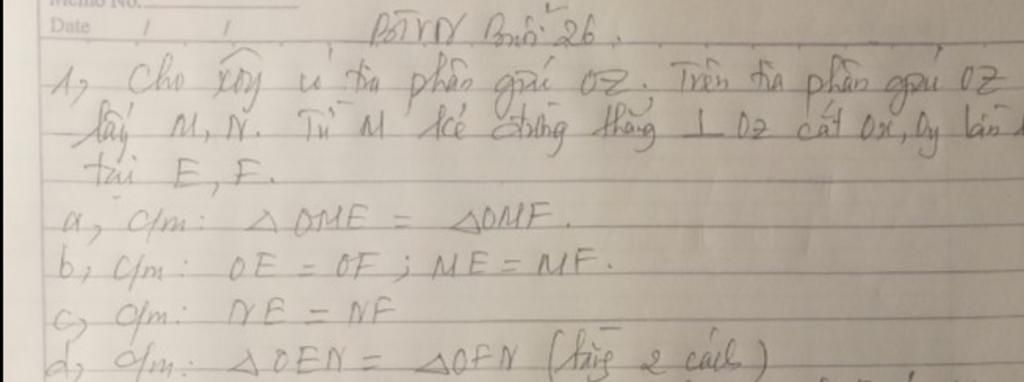 Memo No.
Date / /
BTVN Buổi 26.
1, Cho xôy có tia phân giác OZ. Trên tia phân giác OZ
lấy M, N. Từ M kẻ đường thẳng ⊥ OZ cắt Ox, Oy lần
tại E, F.
a, c/m: △OME = △OMF.
b, c/m: OE = OF ; ME = MF.
c, c/m: NE = NF
d, c/m: △OEN = △OFN (bằng 2 cách)